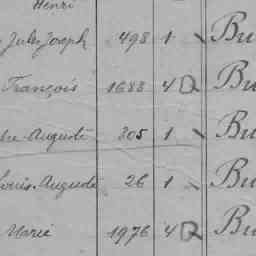 Henri
Jules Joseph 498 1 Bu
François 1688 4D Bu
Auguste 205 1 Bu
Louis-Auguste 26 1 Bu
Marie 1976 4D Bu